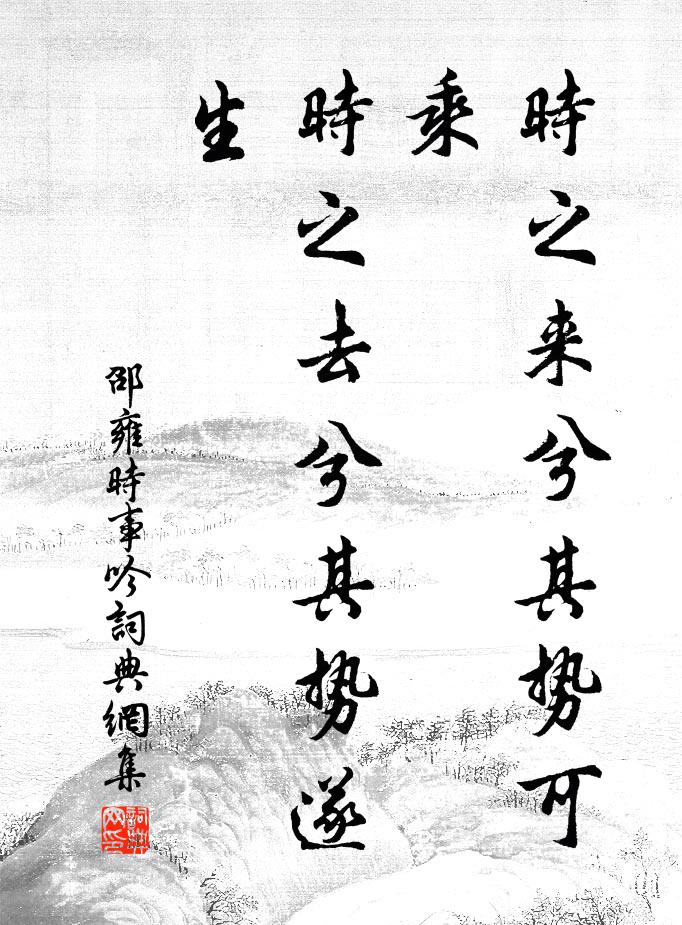 時之来兮其势可
乘
時之去兮其势遂
生
邵雍時事吟詞典網集
詞典
网印